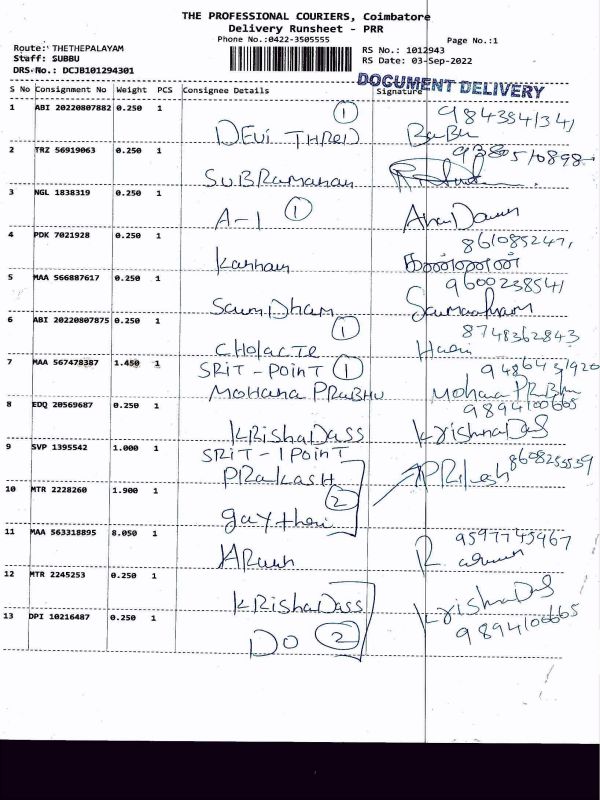 THE PROFESSIONAL COURIERS, Coimbatore
Delivery Runsheet - PRR
Phone No.:0422-3505555
Page No.:1
Route: THETHEPALAYAM
RS No.: 1012943
Staff: SUBBU
RS Date: 03-Sep-2022
DRS No.: DCJB101294301
DOCUMENT DELIVERY
S No Consignment No Weight PCS Consignee Details Signature
1 ABI 20220807882 0.250 1
1
DEVI THRED BaBu
2 TRZ 56919063 0.250 1
SUBRamanan
3 NGL 1838319 0.250 1
A-1 1
4 PDK 7021928 0.250 1
861085247,
Kannan கண்ணன்
5 MAA 566887617 0.250 1
9600238541
6 ABI 20220807875 0.250 1
1
8748362843
7 MAA 567478387 1.450 1
SRIT - POINT 1
MOHANA PRABHU Mohana PRaBhu
8 EDQ 20569687 0.250 1
9894100665
KRIShaDASS KrishnaDaS
9 SVP 1395542 1.000 1
SRIT - 1 POINT
PRAKASH
8608255559
10 MTR 2228260 1.900 1
2
11 MAA 563318895 8.050 1
9597745967
12 MTR 2245253 0.250 1
KRIShaDASS KrishnaDaS
13 DPI 10216487 0.250 1
9894100665
DO 2